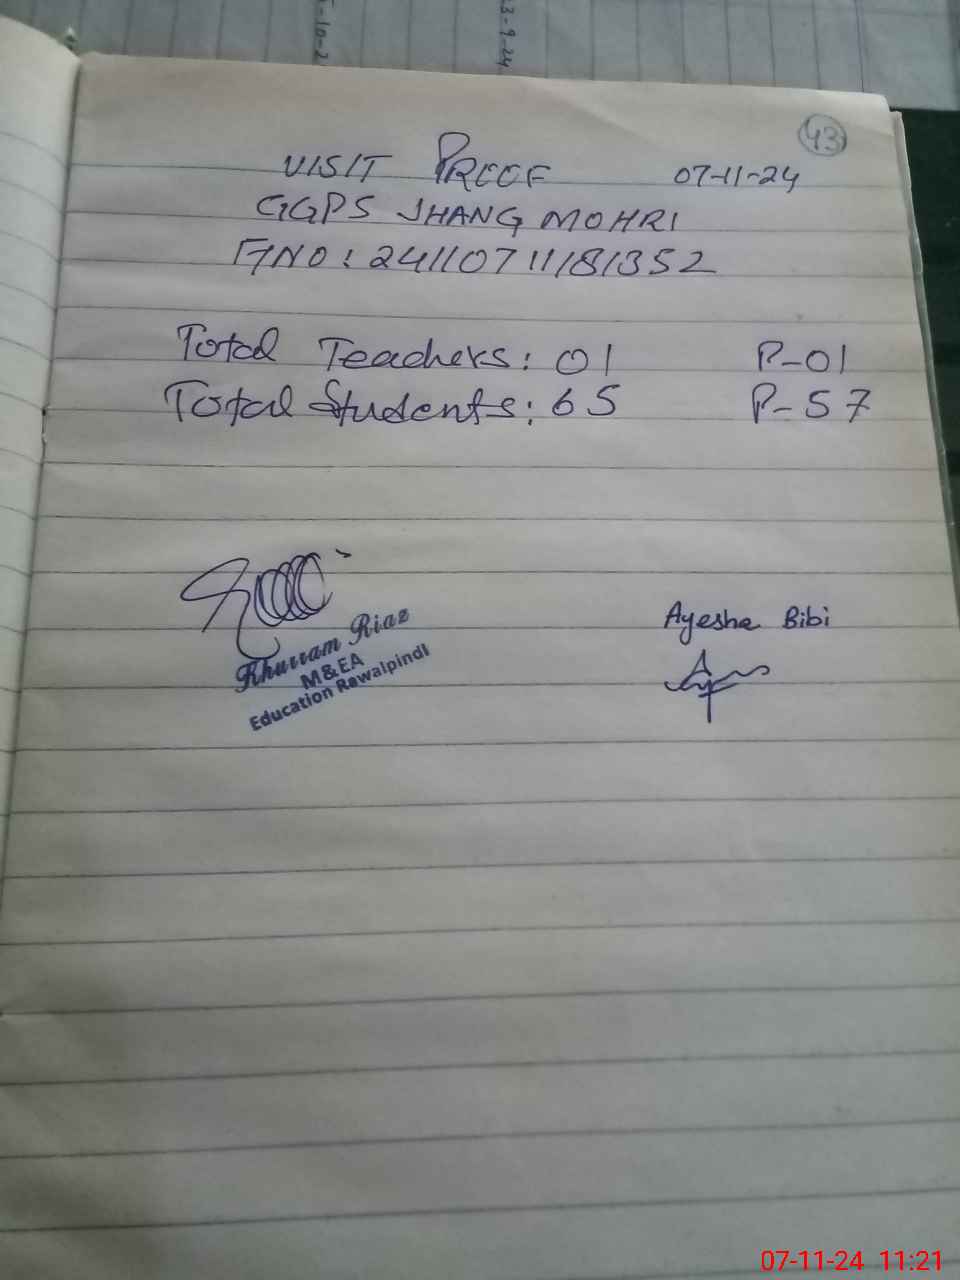 3-9-24
43
VISIT PROOF 07-11-24
GGPS JHANG MOHRI
F/NO: 24110711181352
Total Teachers: 01 P-01
Total Students: 65 P-57
Khurram Riaz
M&EA
Education Rawalpindi
Ayesha Bibi
07-11-24 11:21